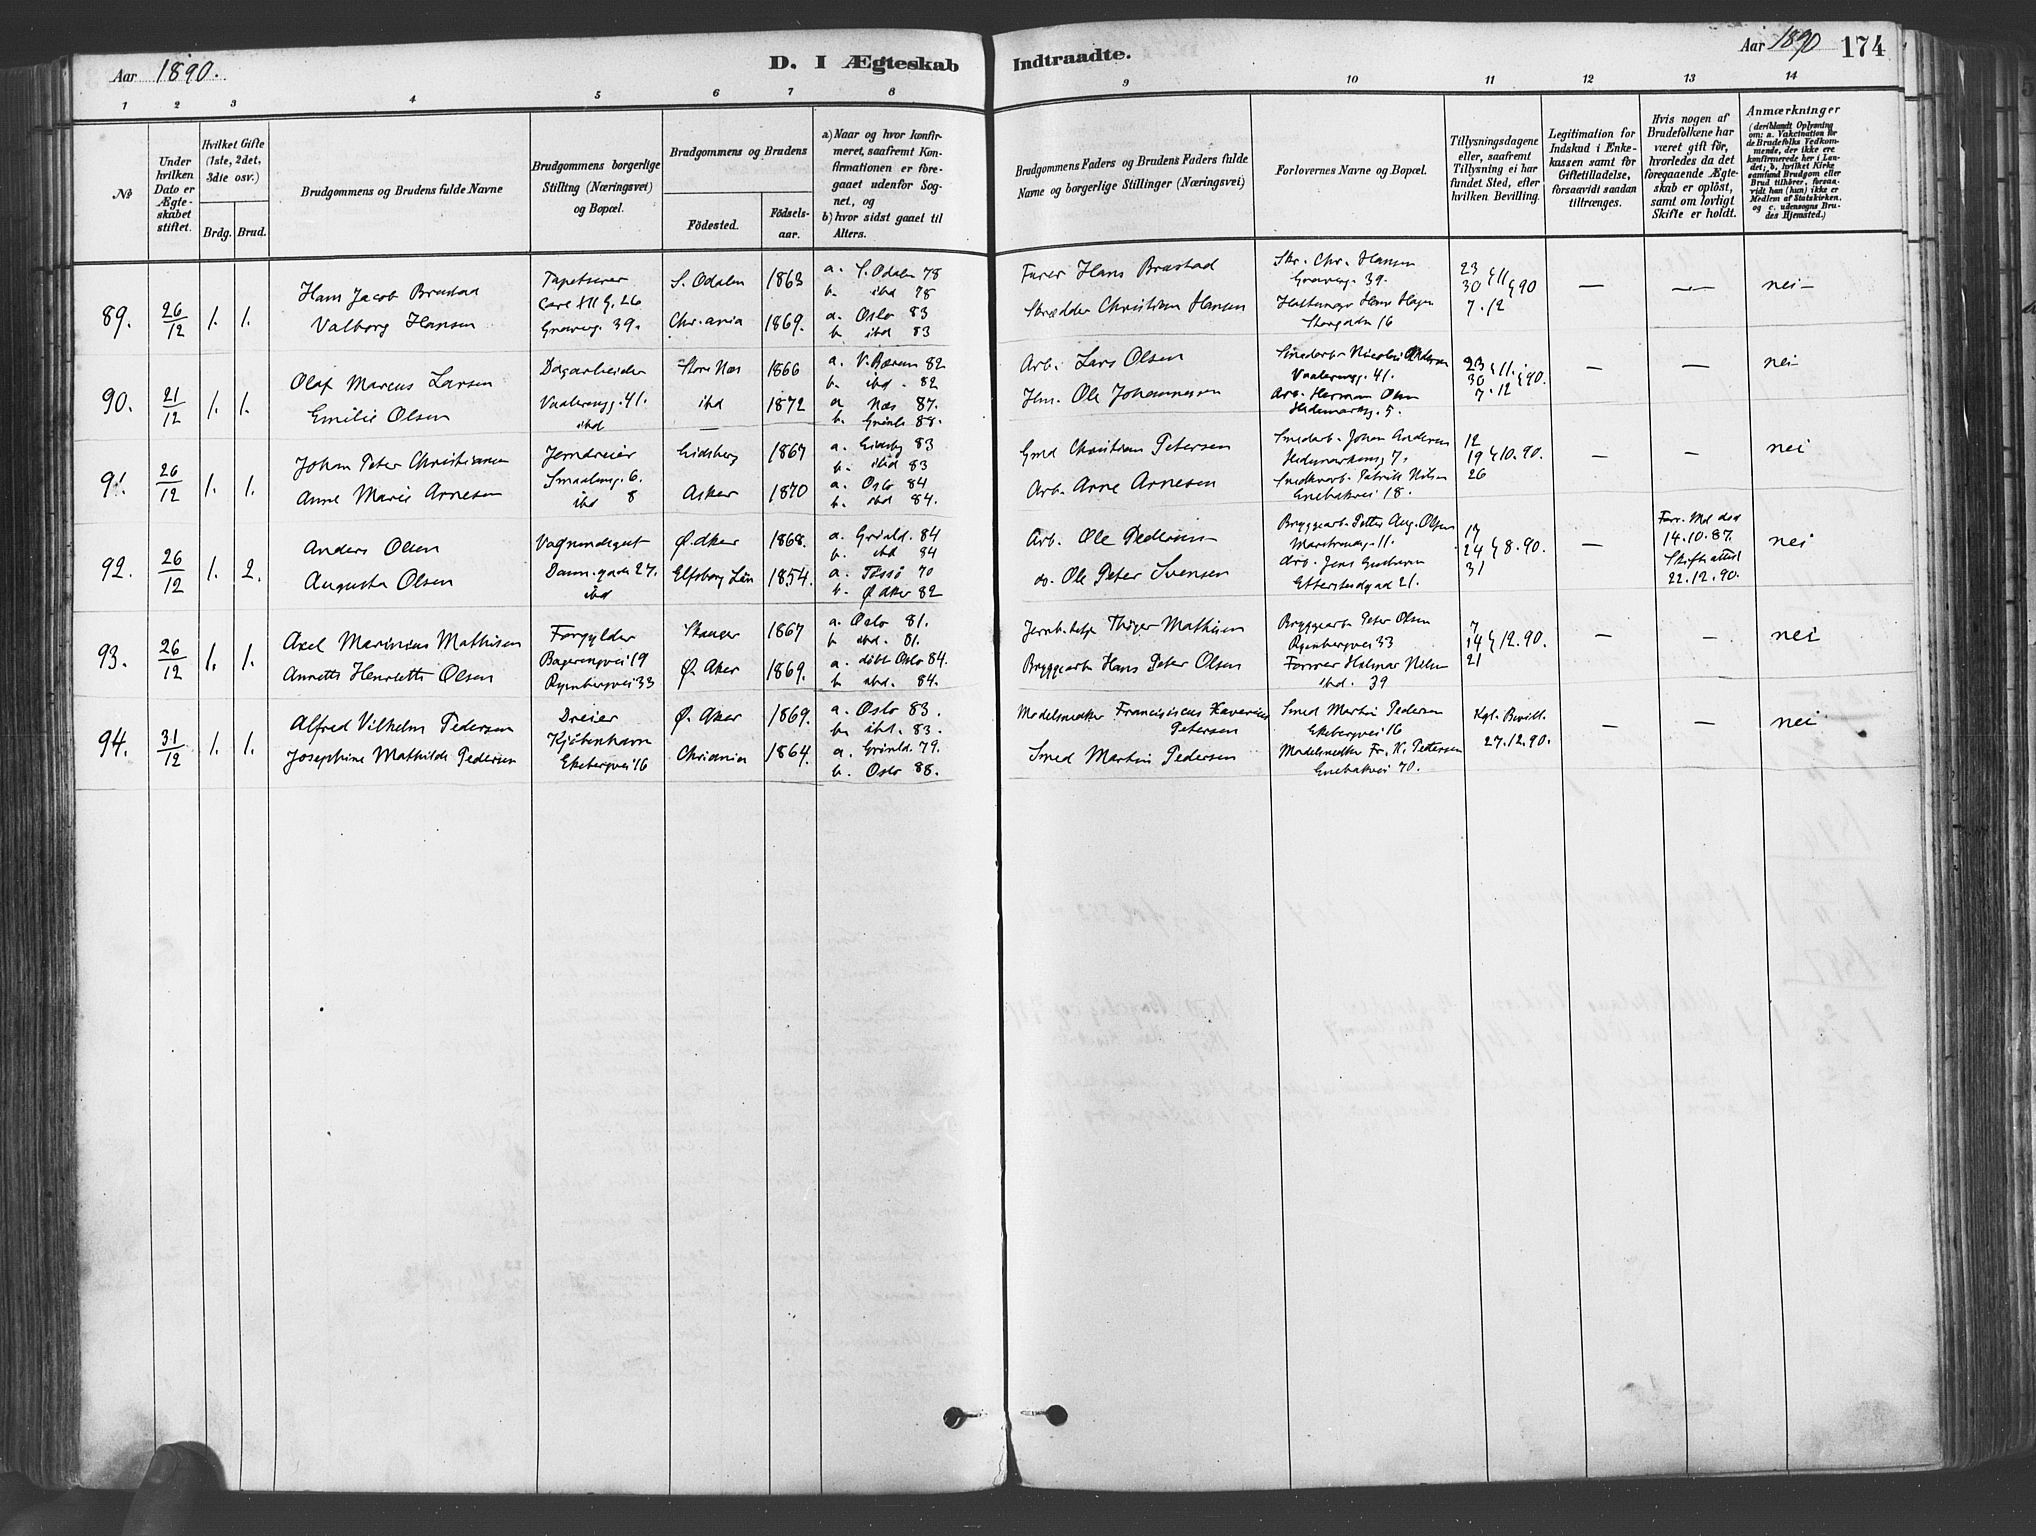 Aar 1890.
D. I Ægteskab Indtraadte.
Aar 1890 174
1 2 3 4 5 6 7 8 9 10 11 12 13 14
No
Under hvilken Dato er Ægteskabet stiftet.
Hvilket Gifte (1ste, 2det, 3die osv.)
Brdg. Brud.
Brudgommens og Brudens fulde Navne
Brudgommens borgerlige Stilling (Næringsvei) og Bopæl.
Brudgommens og Brudens
Födested.
Födselsaar.
a) Naar og hvor konfirmeret, saafremt Konfirmationen er foregaaet udenfor Sognet, og
b) hvor sidst gaaet til Alters.
Brudgommens Faders og Brudens Faders fulde Navne og borgerlige Stillinger (Næringsvei)
Forlovernes Navne og Bopæl.
Tillysningsdagene eller, saafremt Tillysning ei har fundet Sted, efter hvilken Bevilling.
Legitimation for Indskud i Enkekassen samt for Giftetilladelse, forsaavidt saadan tiltrænges.
Hvis nogen af Brudefolkene har været gift för, hvorledes da det foregaaende Ægteskab er oplöst, samt om lovligt Skifte er holdt.
Anmærkninger
(deriblandt Oplysning om: a. Vakcination for de Brudefolks Vedkommende, der ikke ere konfirmerede her i Landet, b. hvilket Kirkesamfund Brudgom eller Brud tilhörer, forsaavidt han (hun) ikke er Medlem af Statskirken, og c. udensogns Brudes Hjemsted.)
89. 26/12 1. 1.
Hans Jacob Brastad
Valborg Hansen
Tapetserer
Carl XII G. 26
Grønveg. 39.
S. Odalen 1863
Chr.ania 1869.
a. S. Odalen 78
b. ibd 78
a. Oslo 83
b. ibd 83
Furer Hans Brastad
Skrædder Christian Hansen
Skr. Chr. Hansen
Grønveg. 39.
Hans Hagen
Storgaden 16
23
30 11 90
7. 12
— — nei
90. 21/12 1. 1.
Olaf Marcus Larsen
Emilie Olsen
Dagarbeider
Vaalerengg. 41.
ibd
Store Næs 1866
ibd 1872
a. V. Bærum 82
b. ibd. 82
a Næs 87.
b. Grønl. 88.
Arb. Lars Olsen
Hm. Ole Johannesen
Smedarb. Nicolai Andersen
Vaalerengg. 41.
Arb. Herman Olsen
Hedemarksg. 5.
23
30 11. 90.
7. 12
— — nei
91. 26/12 1. 1.
Johan Peter Christiansen
Anne Marie Arnesen
Jerndreier
Smaaleng. 6.
ibd 8
Eidsberg 1867
Asker 1870
a. Eidsbg 83
b. ibid 83
a. Oslo 84
b. ibd 84.
Gmd Christian Petersen
Arb. Arne Arnesen
Smedarb. Johan Andersen
Hedemarkensg 7.
Snedkerarb. Patrick Nilsen
Enebakvei 18.
12
19 10. 90.
26
— — nei
92. 26/12 1. 2.
Anders Olsen
Augusta Olsen
Vognmandsgut
Danm.gade 27.
ibd
Ø. Aker 1868.
Elfsborg Län 1854.
a. Grønld. 84
b. ibd 84
a. Tössö 70
b. Ø Aker 82
Arb. Ole Pedersen
do. Ole Peter Svensen
Bryggearb. Petter Aug. Olsen
Marstrandg. 11.
Arb. Jens
Etterstadgad 21.
17
24 8. 90.
31
—
Forr. Md død
14.10.87.
Skifteattest
22.12.90.
nei
93. 26/12 1. 1.
Axel Marinius Mathisen
Annette Henriette Olsen
Forgylder
Bøgerengvei 19
Ryenbergvei 33
Skauger 1867
Ø. Aker 1869.
a. Oslo 81.
b. ibd. 81.
a. döbt Oslo 84.
b. ibd. 84.
Jernb.betj. Thöger Mathisen
Bryggearb Hans Peter Olsen
Bryggearb Peter Olsen
Ryenbergvei 33
Former Halmar Nilsen
ibd. 39
7
14 12. 90.
21
— — nei
94. 31/12 1. 1.
Alfred Vilhelm Pedersen
Josephine Mathilde Pedersen
Dreier
Kjøbenhavn
Ekebergvei 16
Ø. Aker 1869.
Chriania 1864.
a. Oslo 83.
b. ibd. 83.
a. Grønld. 79.
b. Oslo 88.
Modelsnedker Franciscus Xaverius Petersen
Smed Martin Pedersen
Smed Martin Pedersen
Ekebergvei 16
Modelsnedker Fr. X. Pettersen
Enebakvei 70.
Kgl. Bevill.
27.12.90.
— — nei